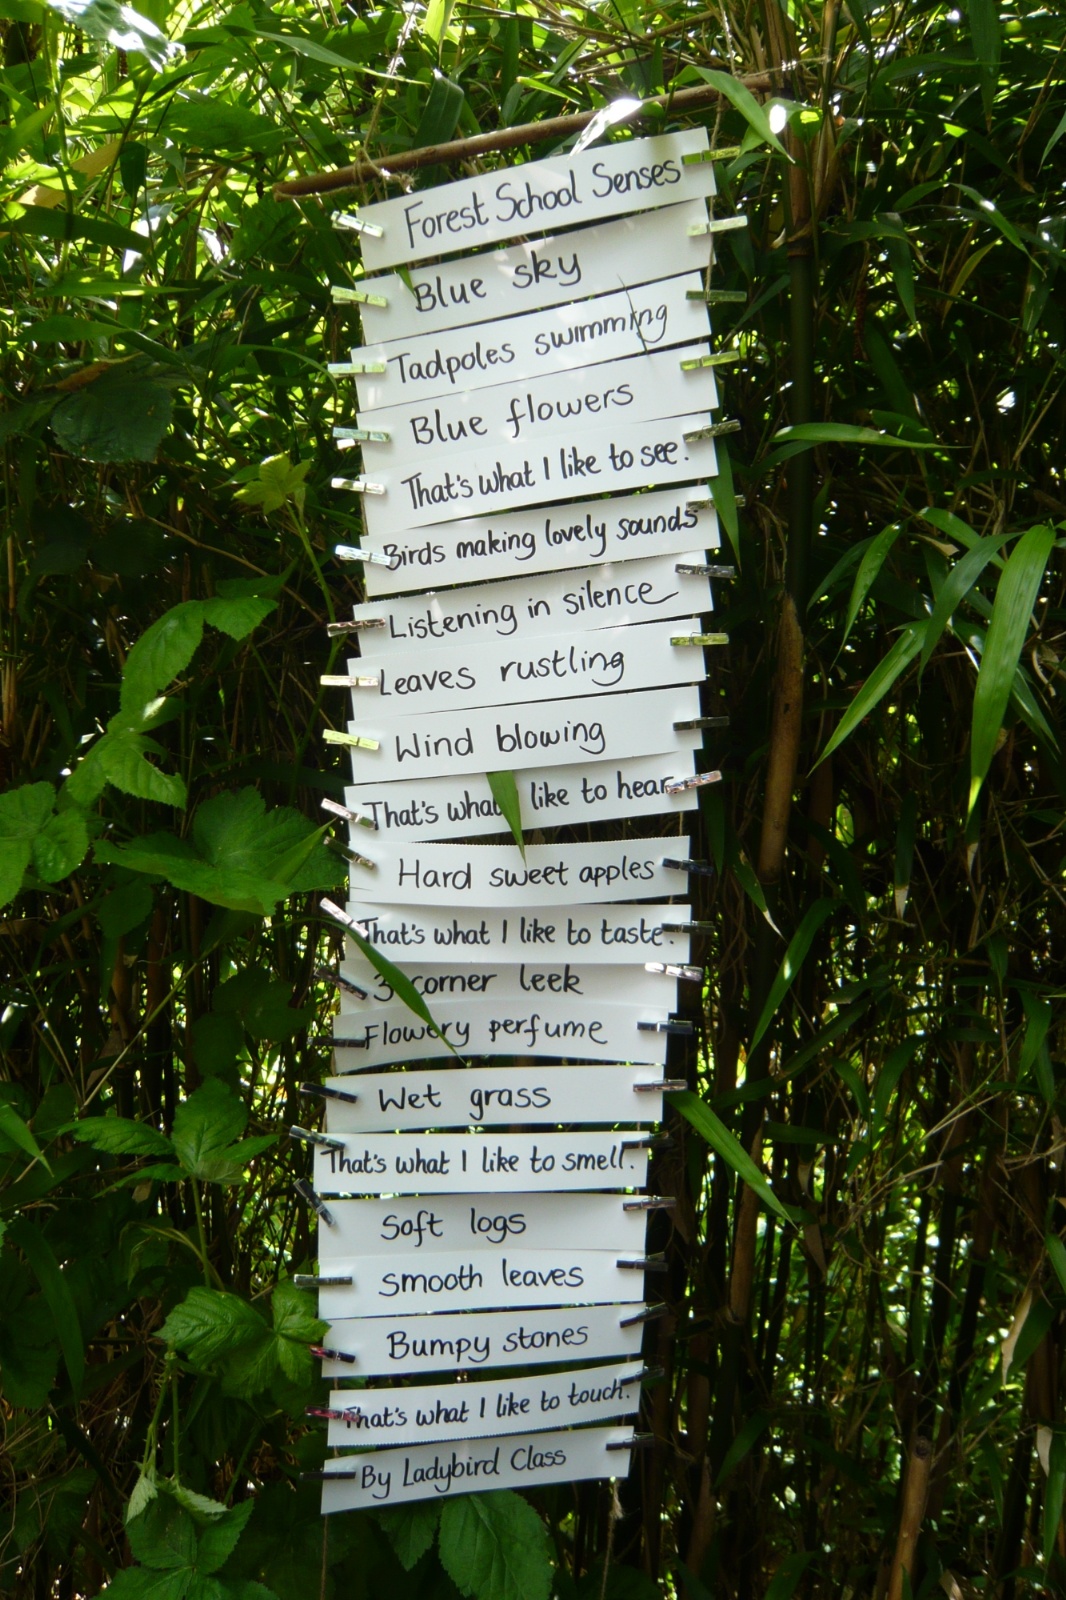 Forest School Senses
Blue sky
Tadpoles swimming
Blue flowers
That's what I like to see.
Birds making lovely sounds
Listening in silence
Leaves rustling
Wind blowing
That's what like to hear
Hard sweet apples
That's what I like to taste.
3 corner leek
Flowery perfume
Wet grass
That's what I like to smell.
Soft logs
smooth leaves
Bumpy stones
That's what I like to touch.
By Ladybird Class